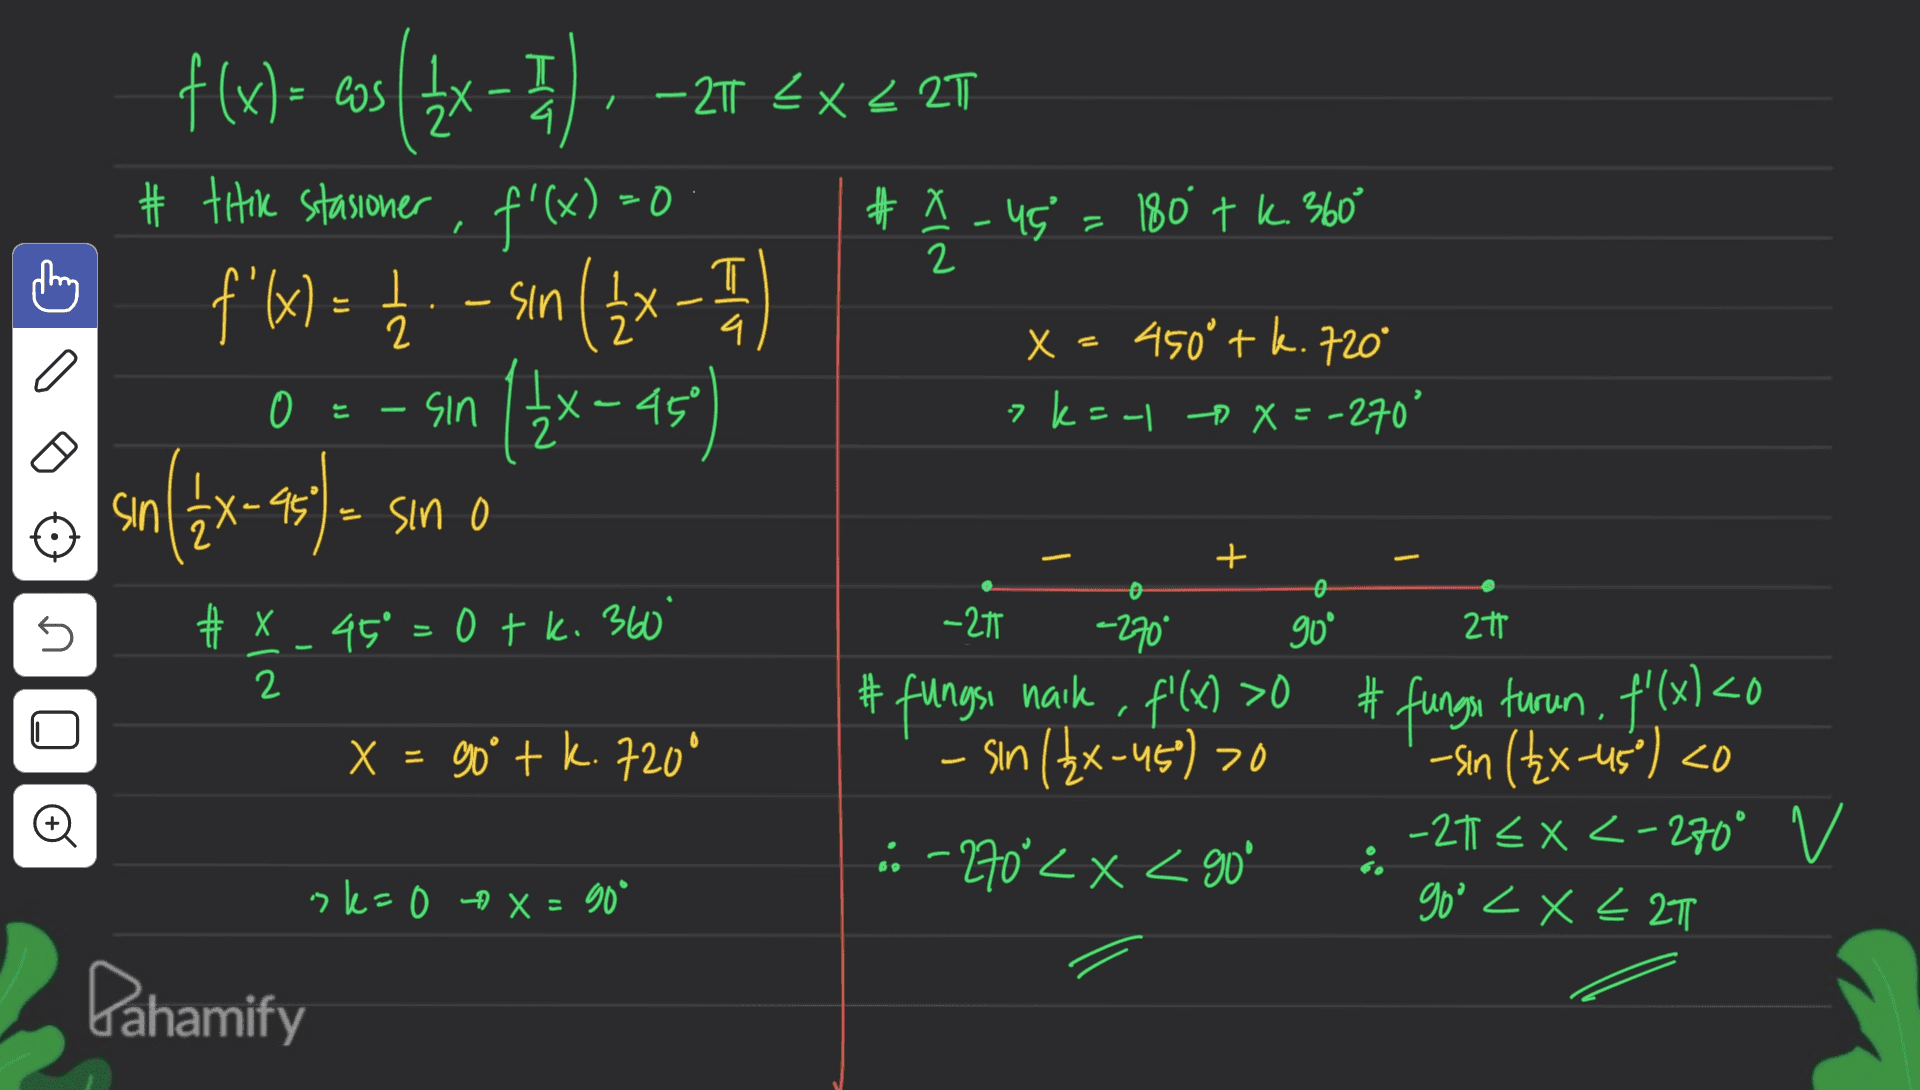 f(x) = cos(1/2 x - π/4), -2π ≤ x ≤ 2π
# titik stasioner, f'(x) = 0
f'(x) = 1/2 . - sin(1/2 x - π/4)
0 = - sin(1/2 x - 45°)
sin(1/2 x - 45°) = sin 0
# x/2 - 45° = 0 + k. 360°
x = 90° + k. 720°
> k = 0 → x = 90°
# x/2 - 45° = 180° + k. 360°
x = 450° + k. 720°
> k = -1 → x = -270°
- + -
-2π -270° 90° 2π
# fungsi naik, f'(x) > 0
- sin(1/2 x - 45°) > 0
∴ -270° < x < 90°
# fungsi turun, f'(x) < 0
-sin(1/2 x - 45°) < 0
∴ -2π ≤ x < -270° V
90° < x ≤ 2π
Pahamify